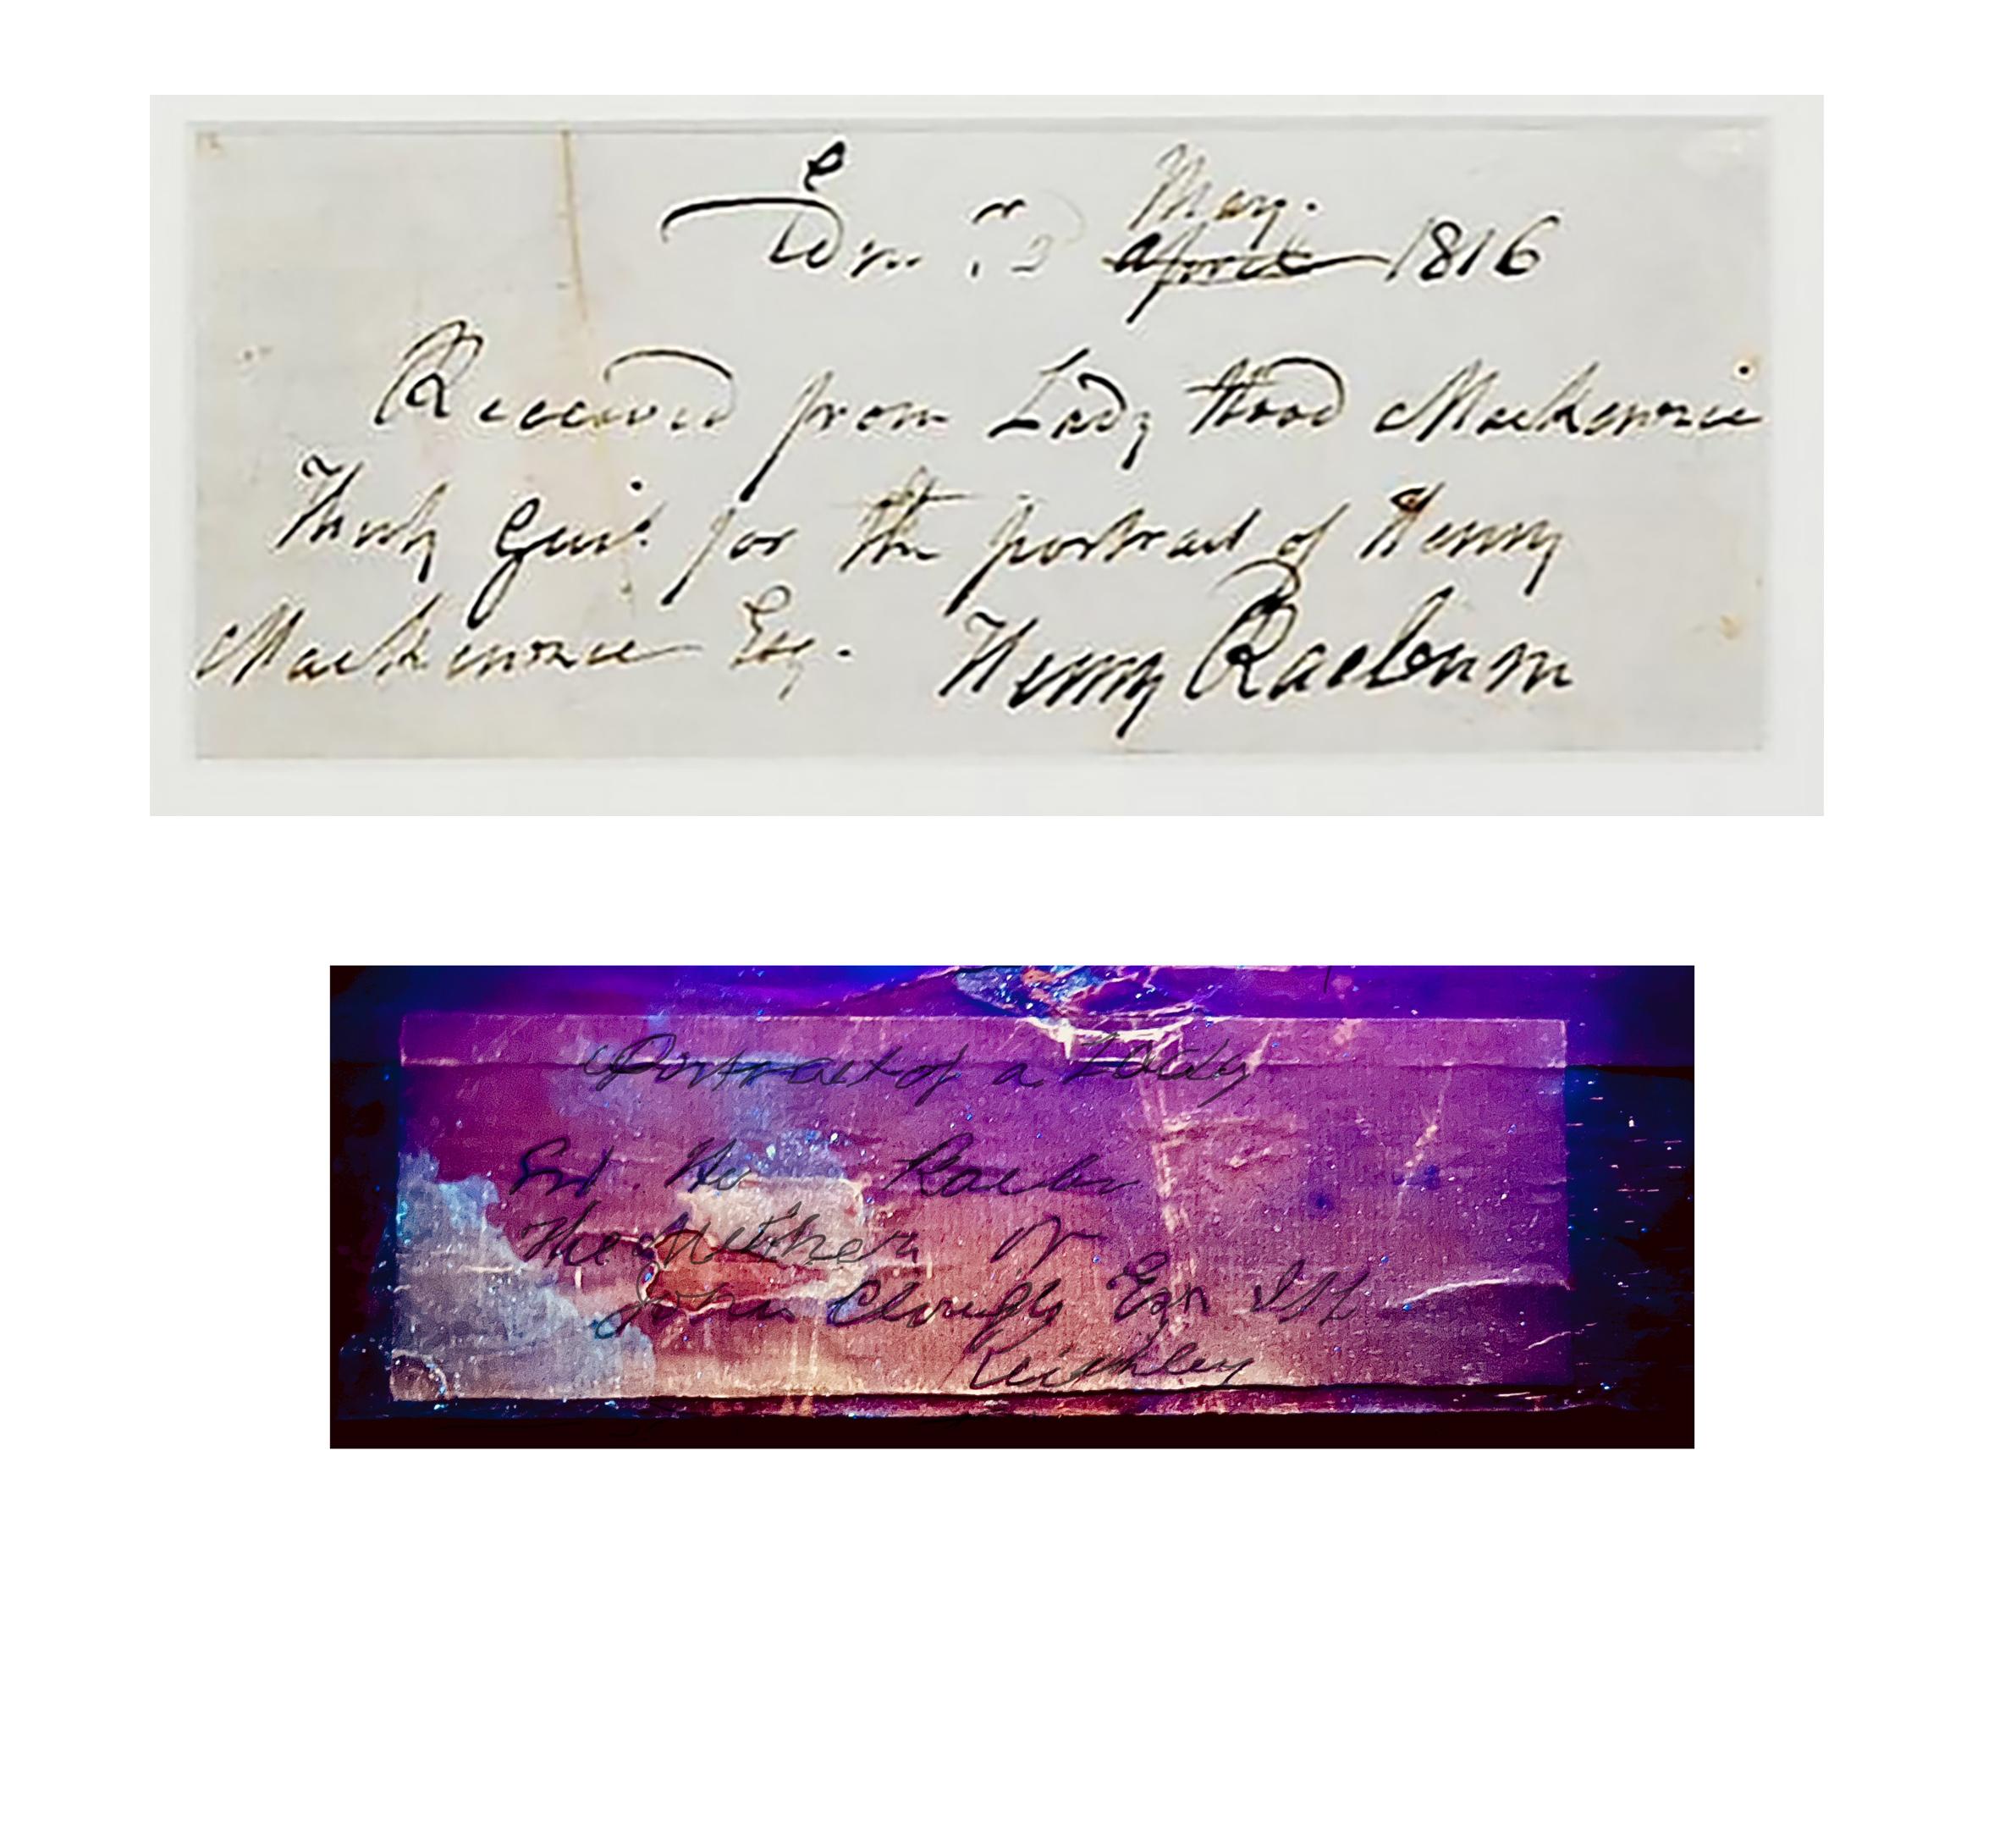 e
Edin 1816
May.
april
Received from Lady Hood Mackenzie
Thirty Guis. for the portrait of Henry
Mackenzie Esq. Henry Raeburn
Portrait of a Lady
He Raebu
The Mother of
John Clough Esqr
Keighley